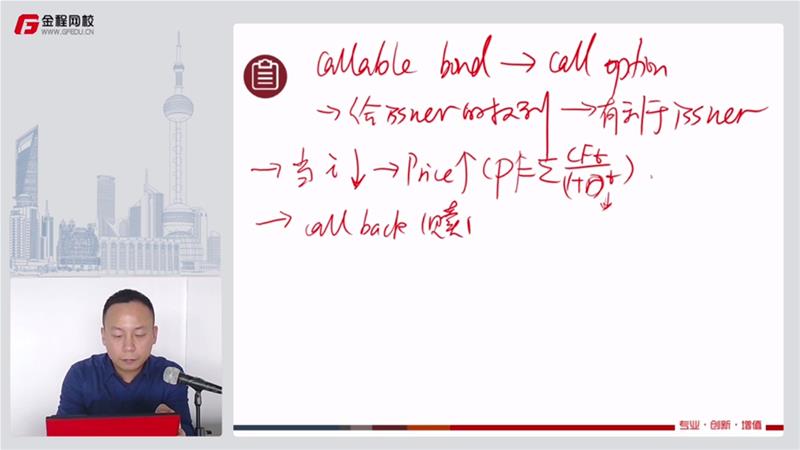 金程网校
WWW.GFEDU.CN
callable bond → call option
→ 给issuer的权利 → 有利于issuer
→ 当 i ↓ → Price↑ (P↑=Σ CFt/(1+i)^t↓).
→ call back (赎
专业·创新·增值